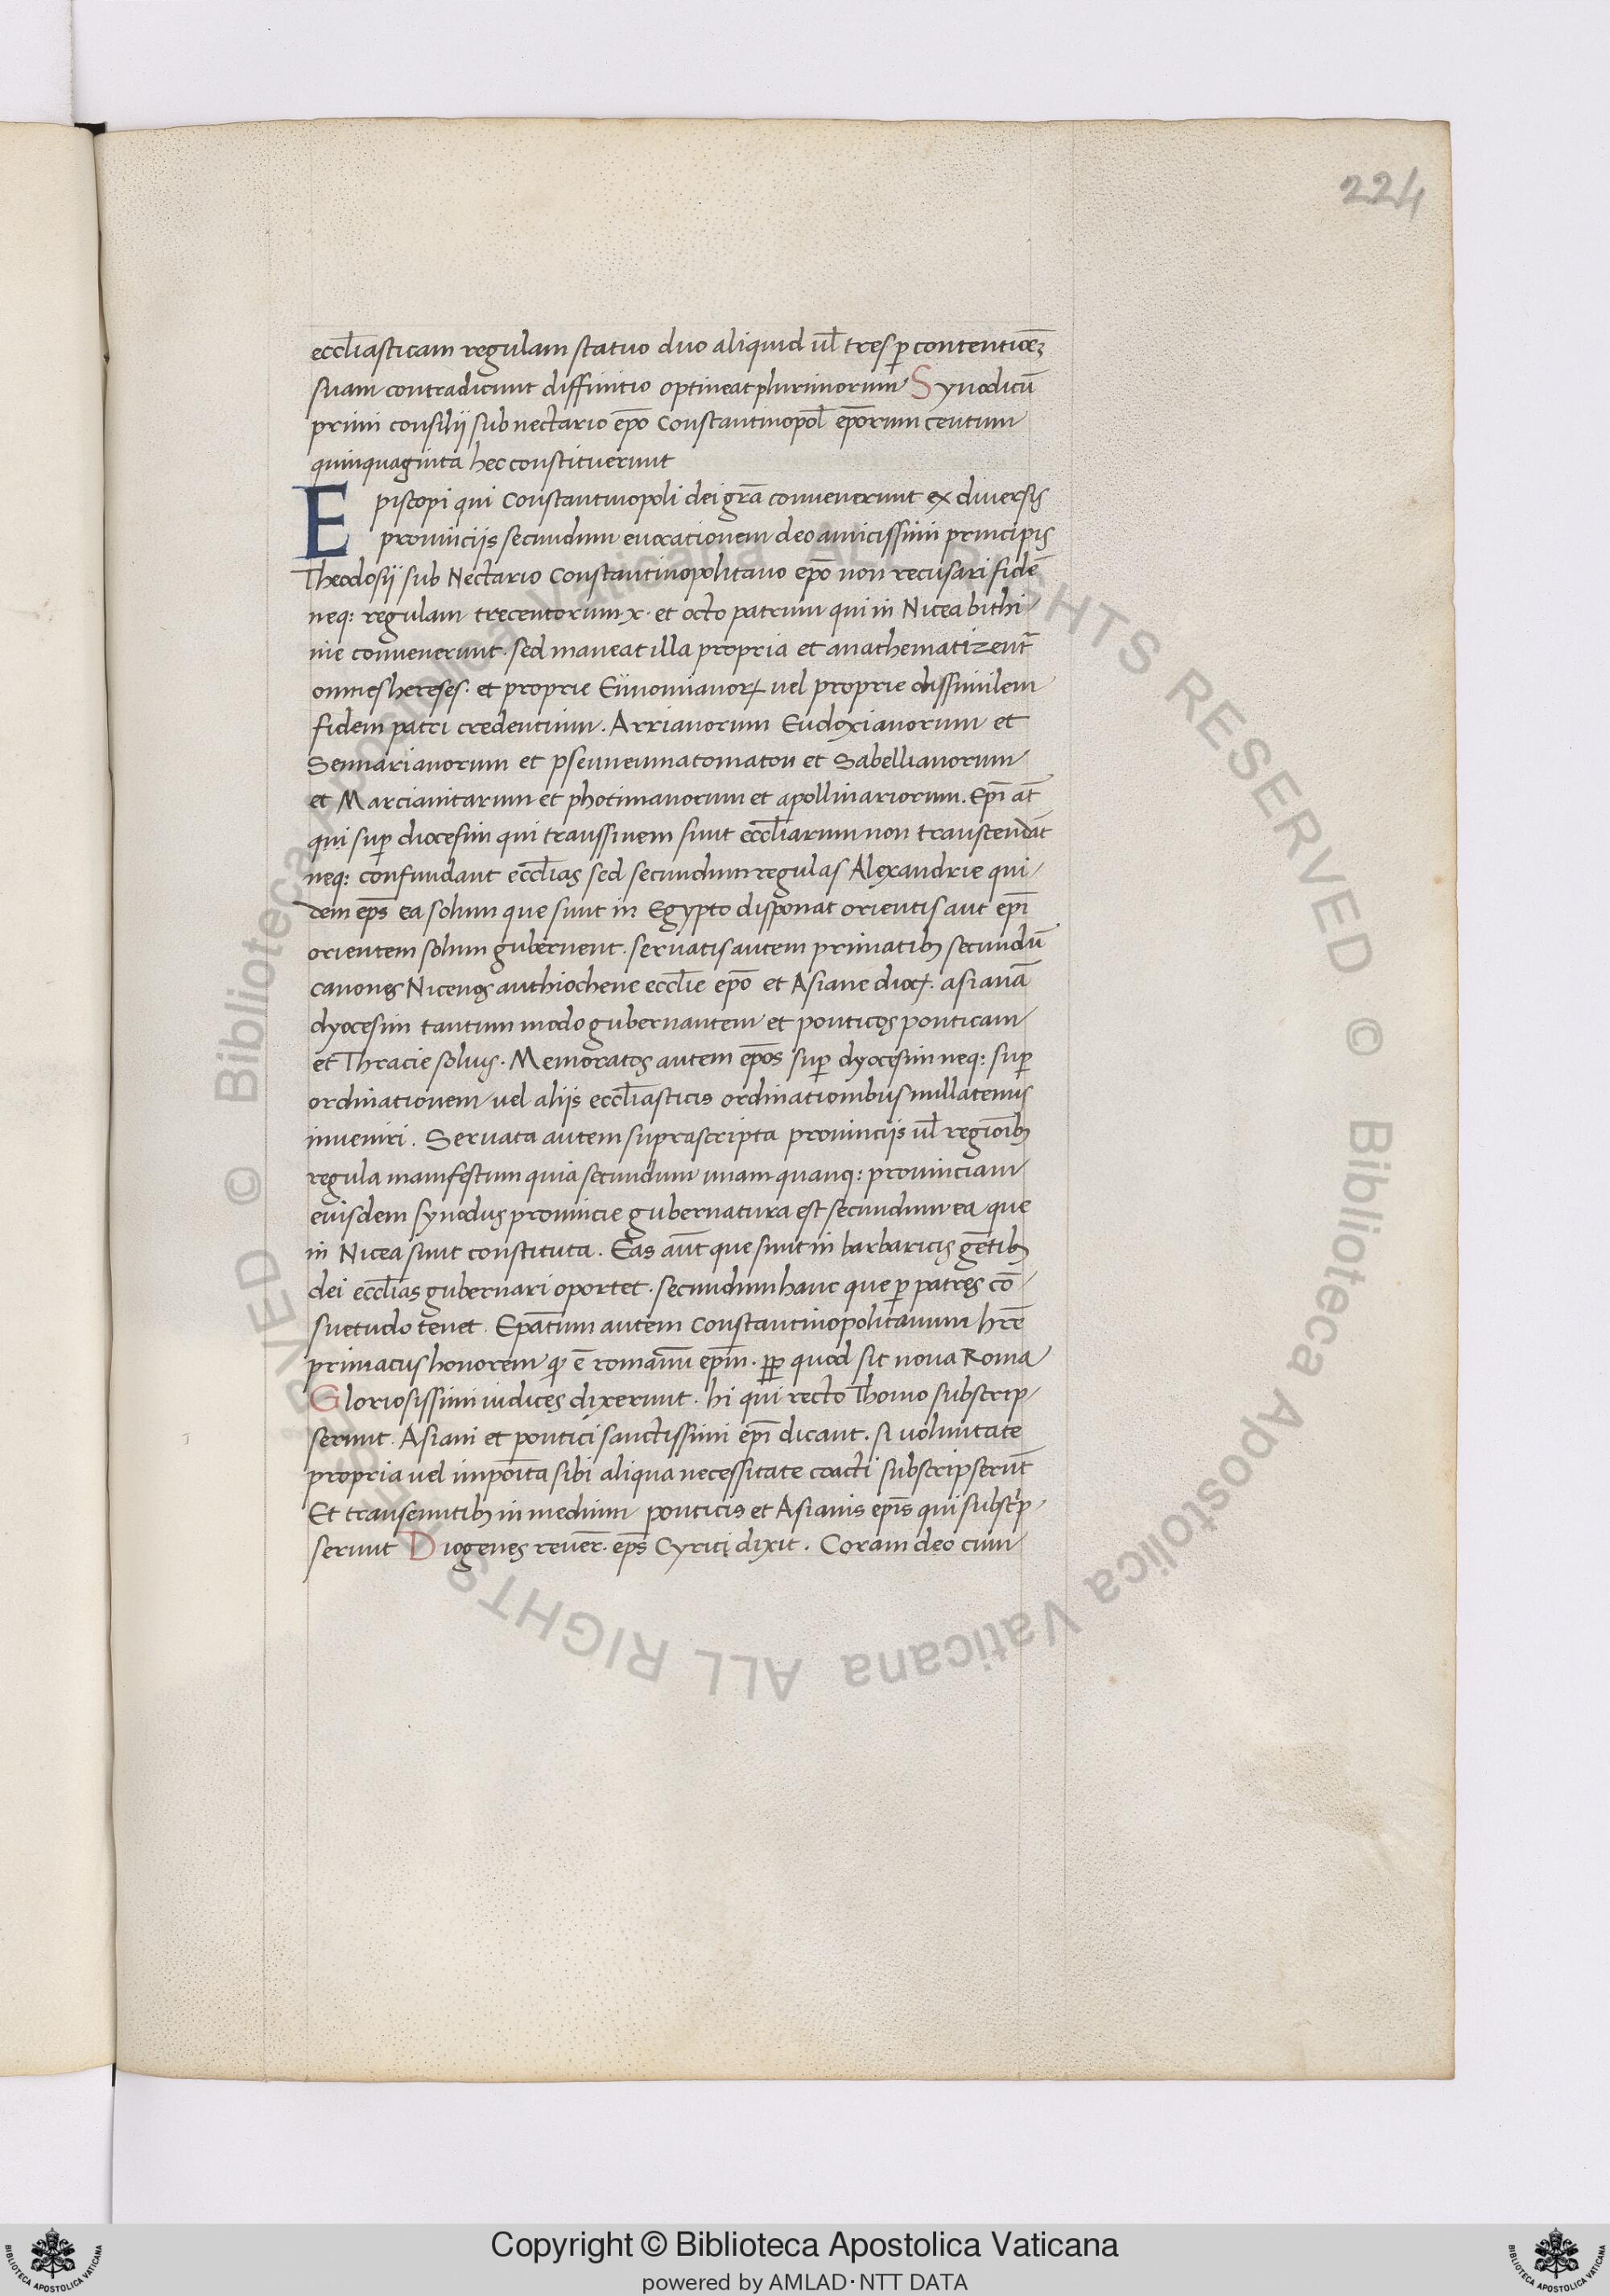 224
eccl̄iasticam regulam statuo duo aliquid ul̄ tres ꝑ contentioēȝ
suam contradicunt diffinitio optineat plurimorum Synodicū
primi consilij sub nectario ep̄o Constantinopol̄ ep̄orum centum
quinquaginta hec constituerunt
Episcopi qui Constantinopoli dei gr̄a convenerunt ex diversis
provinciis secundum evocationem deo amicissimi principis
Theodosij sub Nectario Constantinopolitano ep̄o non recusari fidē
neq: regulam trecentorum x· et octo patrum qui in Nicea bithi-
nie convenerunt· sed maneat illa propria et anathematizent᷑
omnes hereses· et proprie Eunomianoꝝ vel proprie dissimilem
fidem patri credentium. Arrianorum Eudoxianorum et
Semiarianorum et pseuneumatomaton et Sabellianorum
et Marcianitarum et photinianorum et apollinariorum. Ep̄i at̄
qui suꝑ diocesim qui transsinem sunt eccl̄iarum non transcendāt
neq: confundant eccl̄ias sed secundum regulas Alexandrie qui-
dem ep̄s ea solum que sunt in Egypto disponat orientis aut ep̄i
orientem solum gubernent. servatis autem primatib; secundū
canones Nicenos anthiochene eccl̄ie ep̄o et Asiane dioꝝ. asianā
dyocesim tantum modo gubernantem et ponticos ponticam
et Thracie solius. Memoratos autem ep̄os suꝑ dyocesim neq: suꝑ
ordinationem vel aliis eccl̄iasticis ordinationibus nullatenus
inveniri. Servata autem suprascripta provinciis ul̄ regiōib;
regula manifestum quia secundum unam quanq: provinciam
eiusdem synodus provincie gubernatura est secundum ea que
in Nicea sunt constituta. Eas aūt que sunt in barbaricis gētib;
dei eccl̄ias gubernari oportet· secundum hanc que ꝑ patres cō-
suetudo tenet. Ep̄atum autem Constantinopolitanum hr̄e
primatus honorem ē romanū ep̄m. quod sit nova Roma
Gloriosissimi iudices dixerunt. hi qui recto Thomo subscrip-
serunt. Asiani et pontici sanctissimi ep̄i dicant. si voluntate
propria vel impōita sibi aliqua necessitate coacti subscripserūt
Et transeuntib; in medium ponticis et Asianis ep̄is qui subscͥp-
serunt Diogenes rever̄. ep̄s Cyrici dixit. Coram deo cum
© Biblioteca Apostolica Vaticana ALL RIGHTS RESERVED © Biblioteca Apostolica Vaticana ALL RIGHTS RESERVED
Copyright © Biblioteca Apostolica Vaticana
powered by AMLAD·NTT DATA
BIBLIOTECA APOSTOLICA VATICANA
BIBLIOTECA APOSTOLICA VATICANA